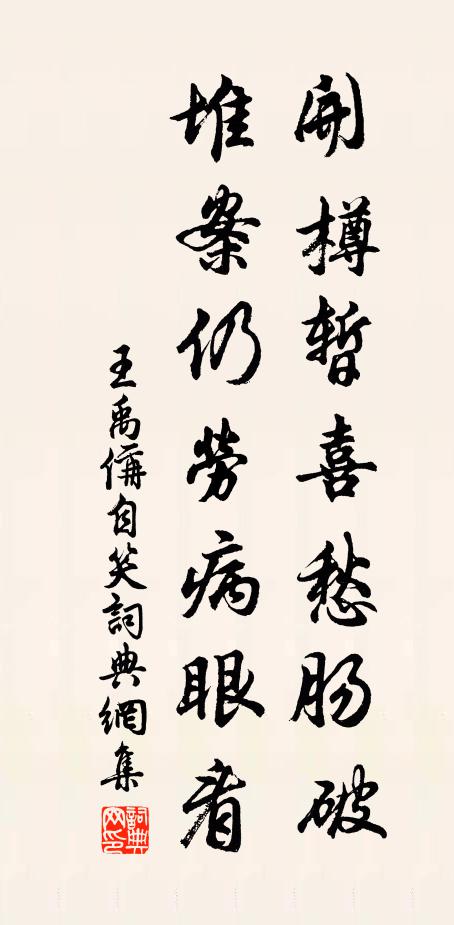 開樽暫喜愁腸破
堆案仍勞病眼看
王禹偁自笑詞典網集
詞典網印